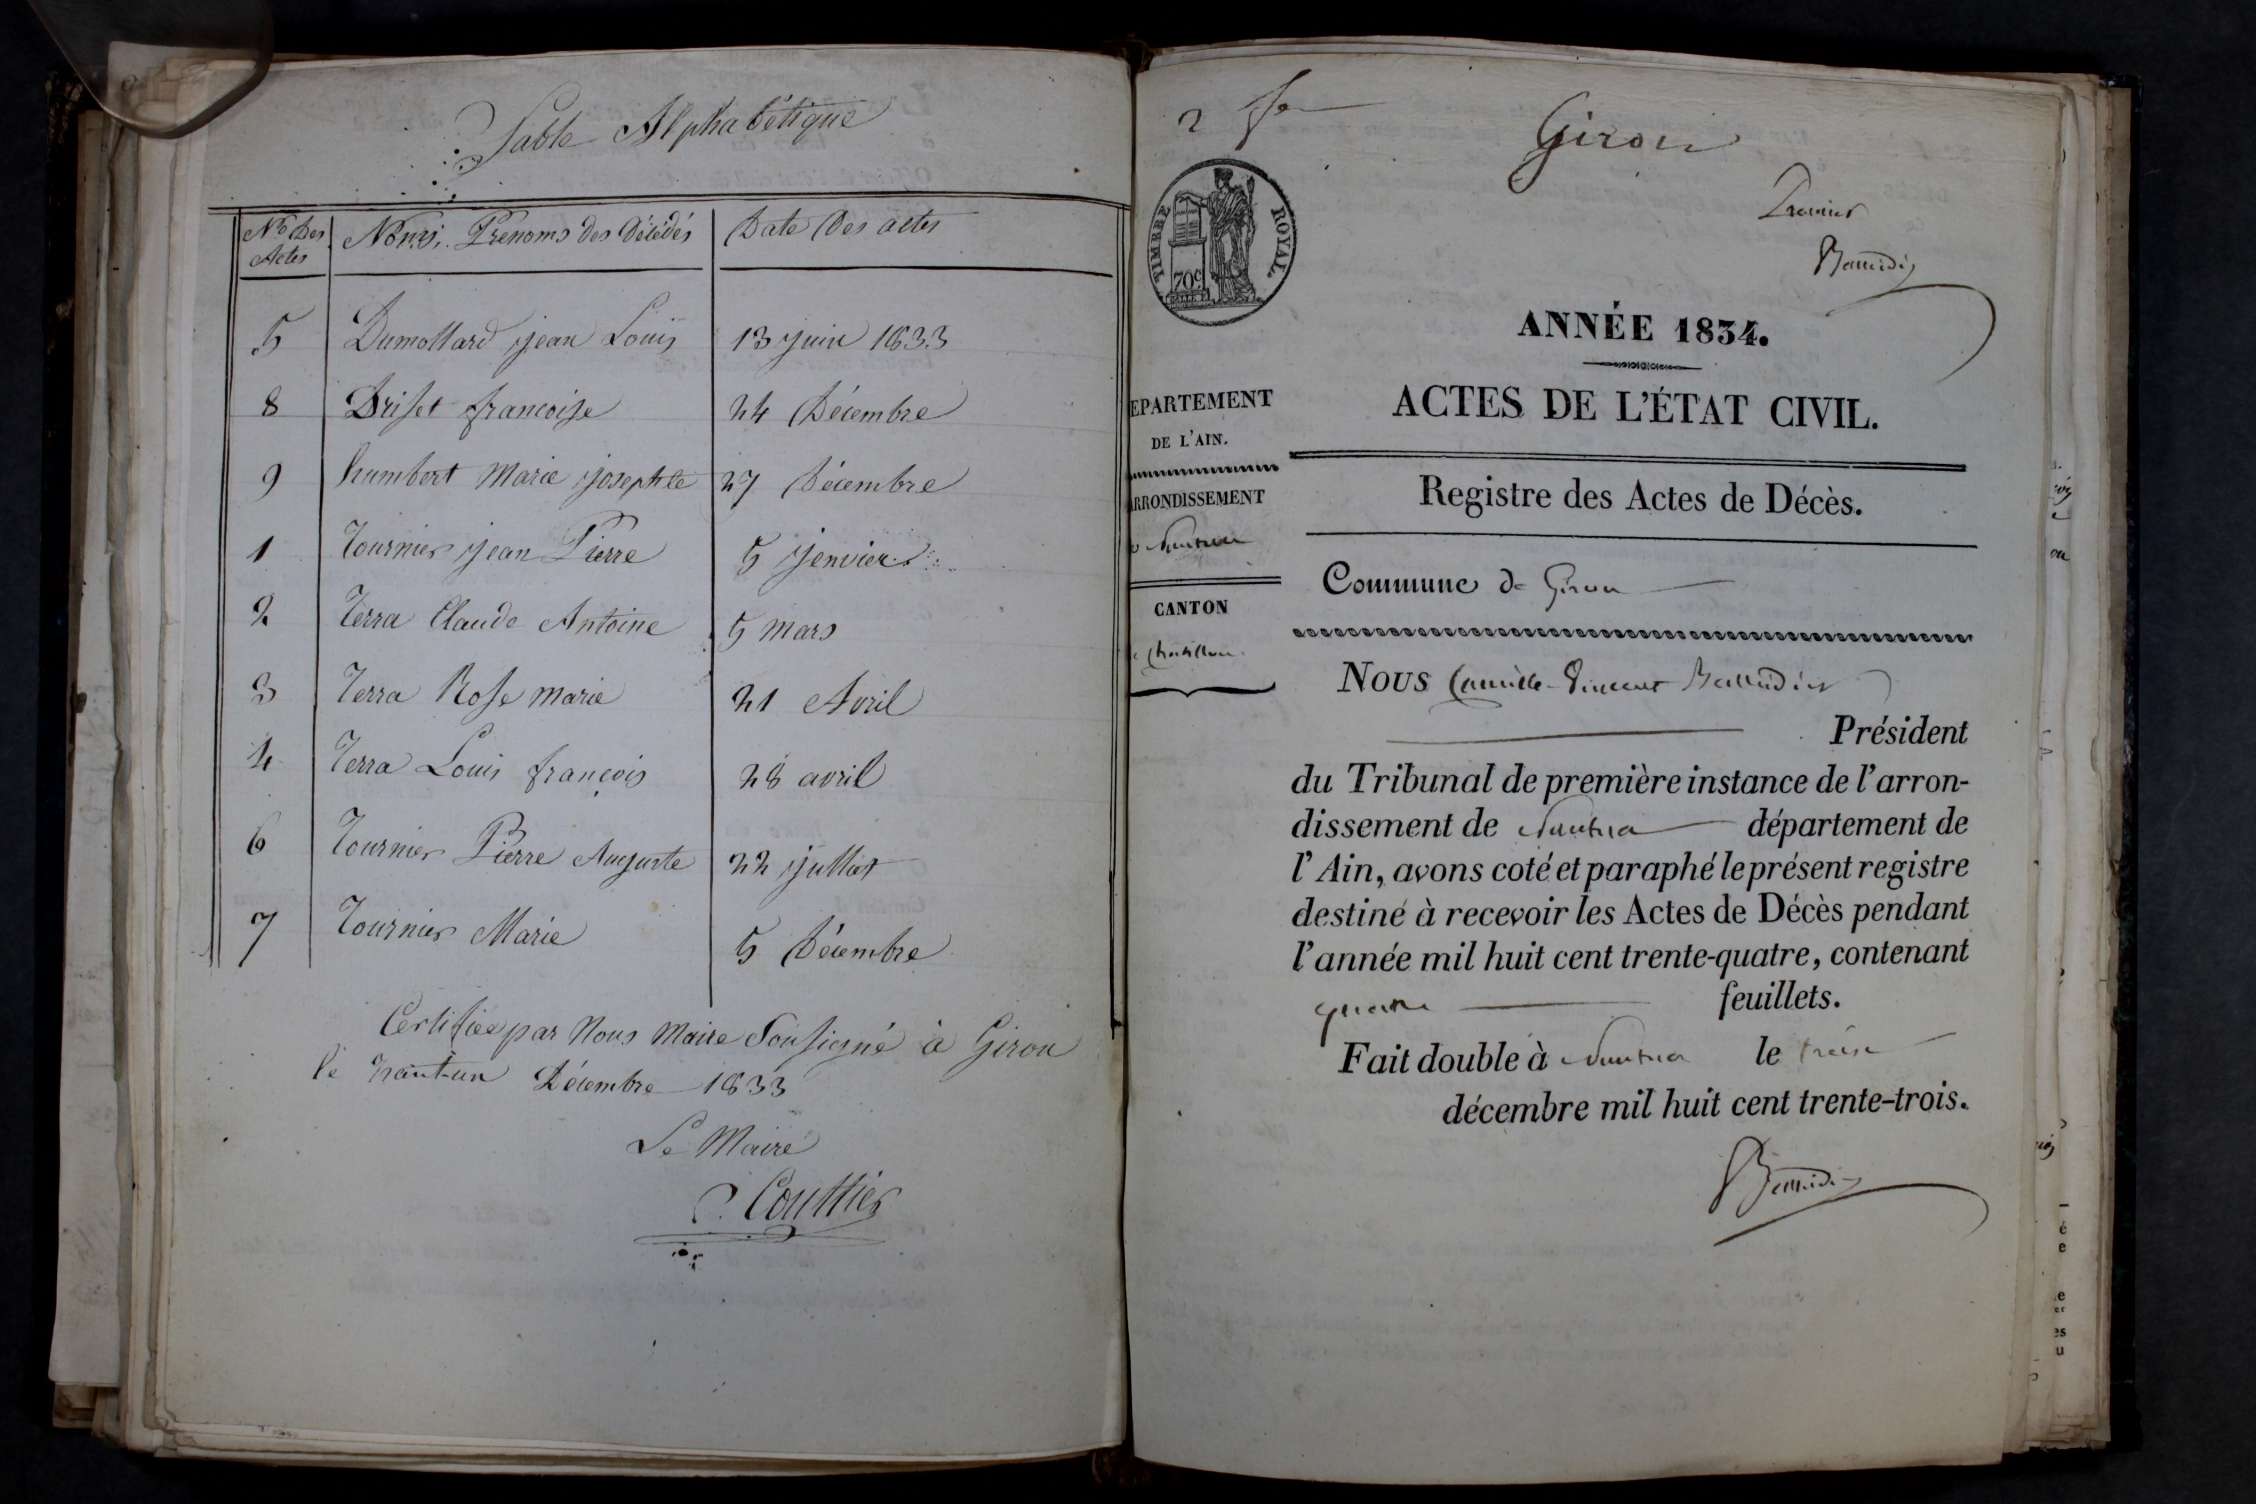 Table Alphabétique
No des Actes | Noms, Prenoms des Décédés | Date des actes
5 | Dumollard jean Louis | 13 juin 1833
8 | Driset francoise | 24 Décembre
9 | humbert Marie josephte | 27 Décembre
1 | Tournier jean Pierre | 5 jenvier
2 | Terra Claude Antoine | 5 mars
3 | Terra Rose marie | 21 Avril
4 | Terra Louis françois | 28 avril
6 | Tournier Pierre Auguste | 22 jullet
7 | Tournier Marie | 5 Décembre
Certifiée par Nous Maire Sousigné à Giron
le trant-un Décembre 1833
Le Maire
Couttier
2
Giron
Premier
TIMBRE ROYAL
70c
ANNÉE 1834.
ACTES DE L'ÉTAT CIVIL.
EPARTEMENT
DE L'AIN.
RRONDISSEMENT
Nantua
CANTON
Chatillon
Registre des Actes de Décès.
Commune de Giron
Nous Camille-Vincent
Président
du Tribunal de première instance de l'arron-
dissement de Nantua département de
l'Ain, avons coté et paraphé le présent registre
destiné à recevoir les Actes de Décès pendant
l'année mil huit cent trente-quatre, contenant
quatre feuillets.
Fait double à Nantua le treize
décembre mil huit cent trente-trois.